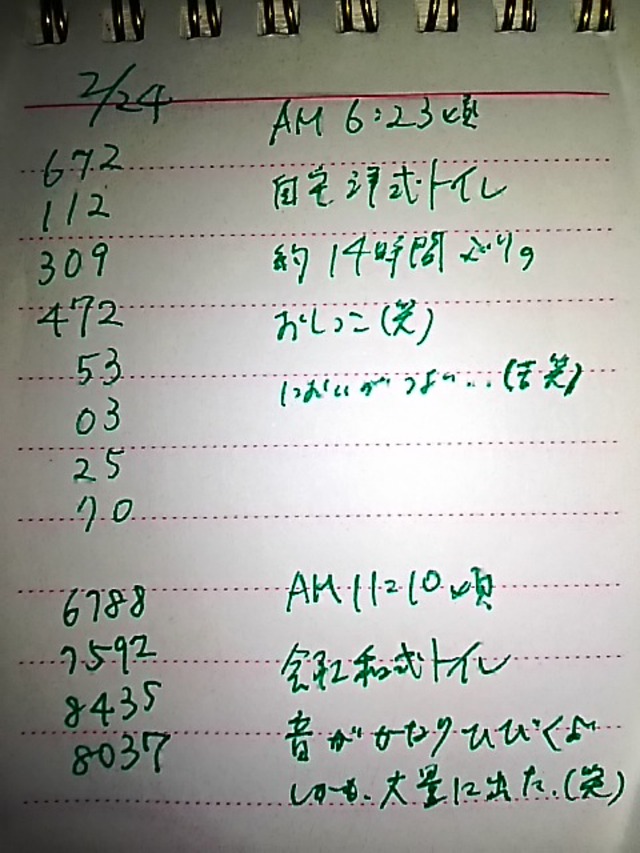 2/24
AM 6:23頃
672
112
自宅洋式トイレ
309
約14時間ぶりの
472
おしっこ(笑)
53
においがつよい...(苦笑)
03
25
70
6788
AM 11:10頃
7592
会社和式トイレ
8435
音がかなりひびくよ
8037
しかも、大量に出た.(笑)